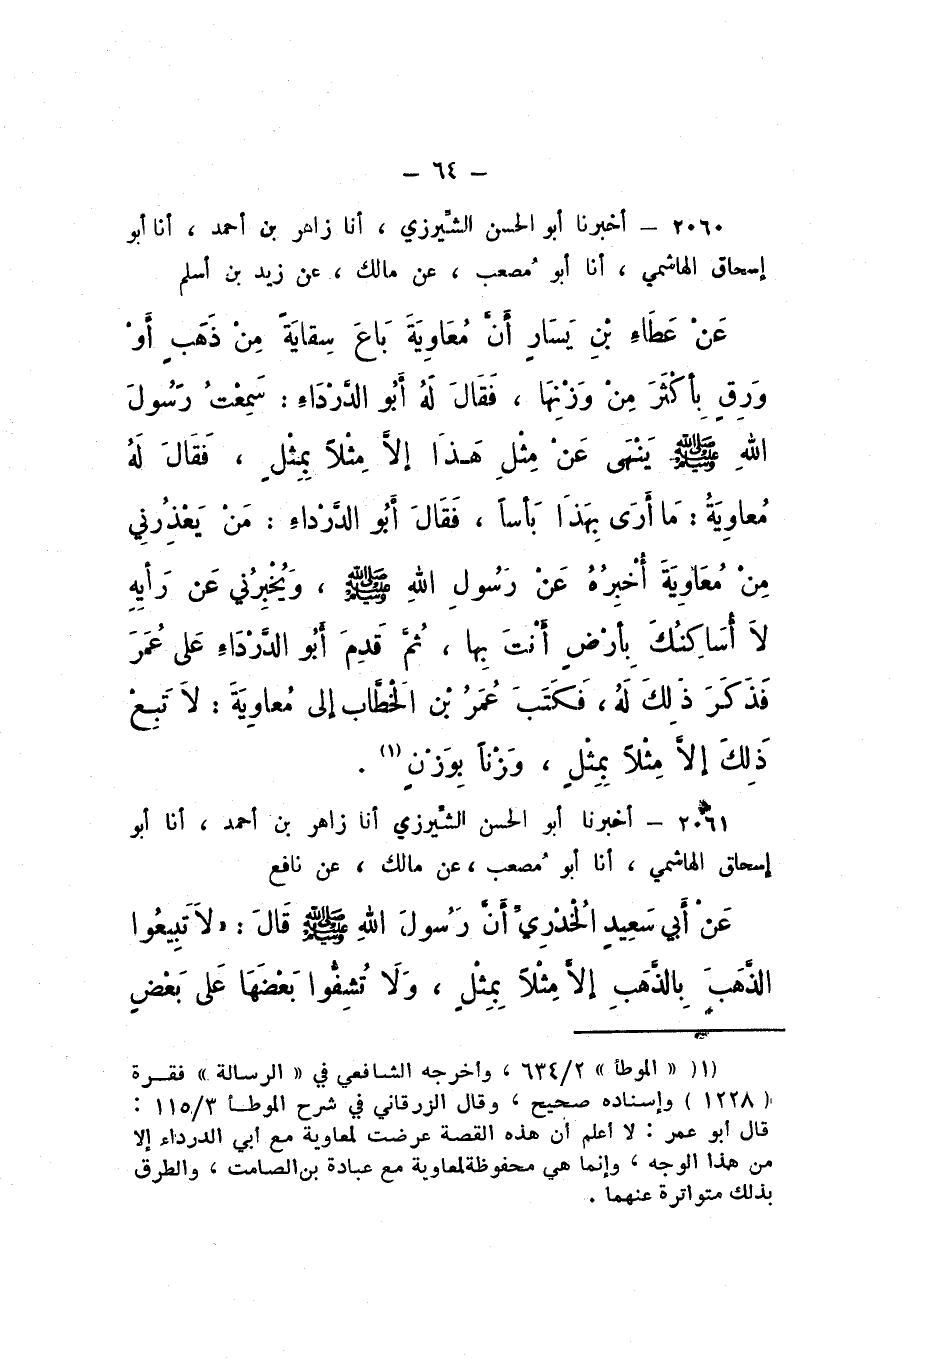 – ٦٤ –
٢٠٦٠ – أخبرنا أبو الحسن الشِّيرزي ، أنا زاهر بن أحمد ، أنا أبو
إسحاق الهاشمي ، أنا أبو مُصعب ، عن مالك ، عن زيد بن أسلم
عَنْ عَطَاءِ بْنِ يَسَارٍ أَنَّ مُعَاوِيَةَ بَاعَ سِقايَةً مِنْ ذَهَبٍ أَوْ
وَرِقٍ بِأَكْثَرَ مِنْ وَزْنِهَا ، فَقَالَ لَهُ أَبُو الدَّرْدَاءِ : سَمِعْتُ رَسُولَ
اللهِ ﷺ يَنْهَى عَنْ مِثْلِ هَـذَا إلاَّ مِثْلاً بِمِثْلٍ ، فَقَالَ لَهُ
مُعاوِيَةُ : مَا أَرَى بِهَذَا بَأساً ، فَقَالَ أَبُو الدَّرْداءِ : مَنْ يَعْذِرُني
مِنْ مُعَاوِيَةَ أُخْبِرُهُ عَنْ رَسُولِ اللهِ ﷺ ، وَيُخْبِرُني عَن رَأيِهِ
لاَ أُسَاكِنُكَ بِأرْضٍ أَنْتَ بِها ، ثُمَّ قَدِمَ أَبُو الدَّرْدَاءِ عَلى عُمَرَ
فَذَكَرَ ذَلِكَ لَهُ ، فَكَتَبَ عُمَرُ بْن الَخْطَّاب إلى مُعاوِيَةَ : لاَ تَبِعْ
ذَلِكَ إلاَّ مِثْلاً بِمِثْلٍ ، وَزْناً بِوَزْنٍ (١) .
٢٠٦١ – أخبرنا أبو الحسن الشِّيرزي أنا زاهر بن أحمد ، أنا أبو
إسحاق الهاشمي ، أنا أبو مُصعب ، عن مالك ، عن نافع
عَنْ أَبي سَعِيدٍ الُخْدْرِيِّ أَنَّ رَسُولَ اللهِ ﷺ قَالَ : « لاَ تَبِيعُوا
الذَّهَبَ بِالذَّهَبِ إلاَّ مِثْلاً بِمِثْلٍ ، وَلَا تُشِفُّوا بَعْضَهَا عَلى بَعْضٍ
(١) « الموطأ » ٦٣٤/٢ ، وأخرجه الشافعي في « الرسالة » فقـرة
( ١٢٢٨ ) وإسناده صحيح ، وقال الزرقاني في شرح الموطـأ ١١٥/٣ :
قال أبو عمر : لا أعلم أن هذه القصة عرضت لمعاوية مع أبي الدرداء إلا
من هذا الوجه ، وإنما هي محفوظة لمعاوية مع عبادة بن الصامت ، والطرق
بذلك متواترة عنهما .